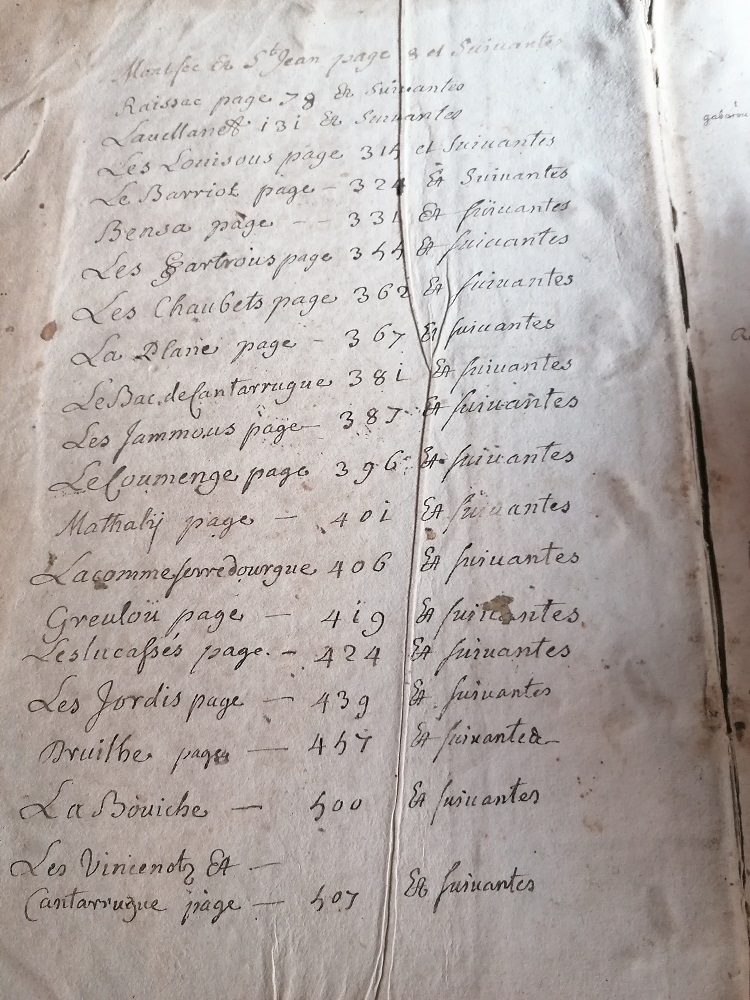 Montsec Et St Jean page 2 et Suivantes
Raissac page 78 Et Suivantes
Lavellanet 131 Et Suivantes
Les Louisous page 314 et Suivantes
Le Barriol page - 324 Et Suivantes
Bensa page - - 331 Et suivantes
Les Gartrous page 344 Et suivantes
Les Chaubets page 362 Et suivantes
La Plane page - 367 Et suivantes
Le Bac de Cantarrugue 381 Et suivantes
Les Jammous page - 387 Et suivantes
Le Coumenge page 396 Et suivantes
Mathalÿ page - 401 Et suivantes
Lacomme ferredourgue 406 Et suivantes
Greuloü page - 419 Et suivantes
Les lucassés page. - 424 Et suivantes
Les Jordis page - 439 Et suivantes
Bruilhe page - 457 Et suivantes
La Bouiche - 500 Et suivantes
Les Vincenotz Et -
Cantarrugue page - 507 Et suivantes